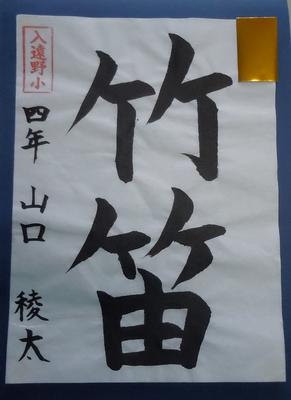 竹笛
入遠野小
四年 山口 稜太